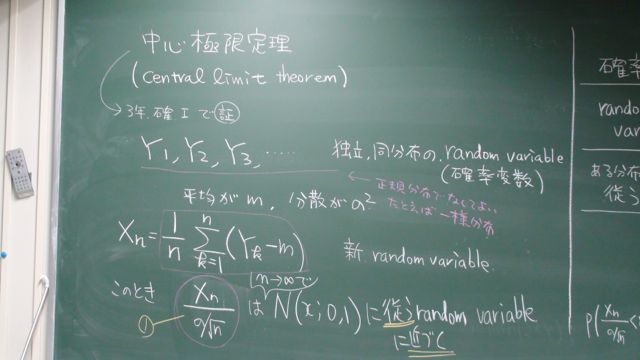 中心極限定理
(central limit theorem)
→3年. 確Iで証
Y1, Y2, Y3, ‥‥‥ 独立, 同分布の. random variable
(確率変数)
← 正規分布でなくてよい.
たとえば一様分布
平均が m, 分散が σ²
Xn = 1/n Σ_{k=1}^{n} (Yk - m) 新 random variable.
n→∞で
このとき Xn/(σ/√n) は N(x; 0, 1) に従う random variable
① に近づく
確率
random
var
ある分布
従う
P(Xn/(σ/√n) <